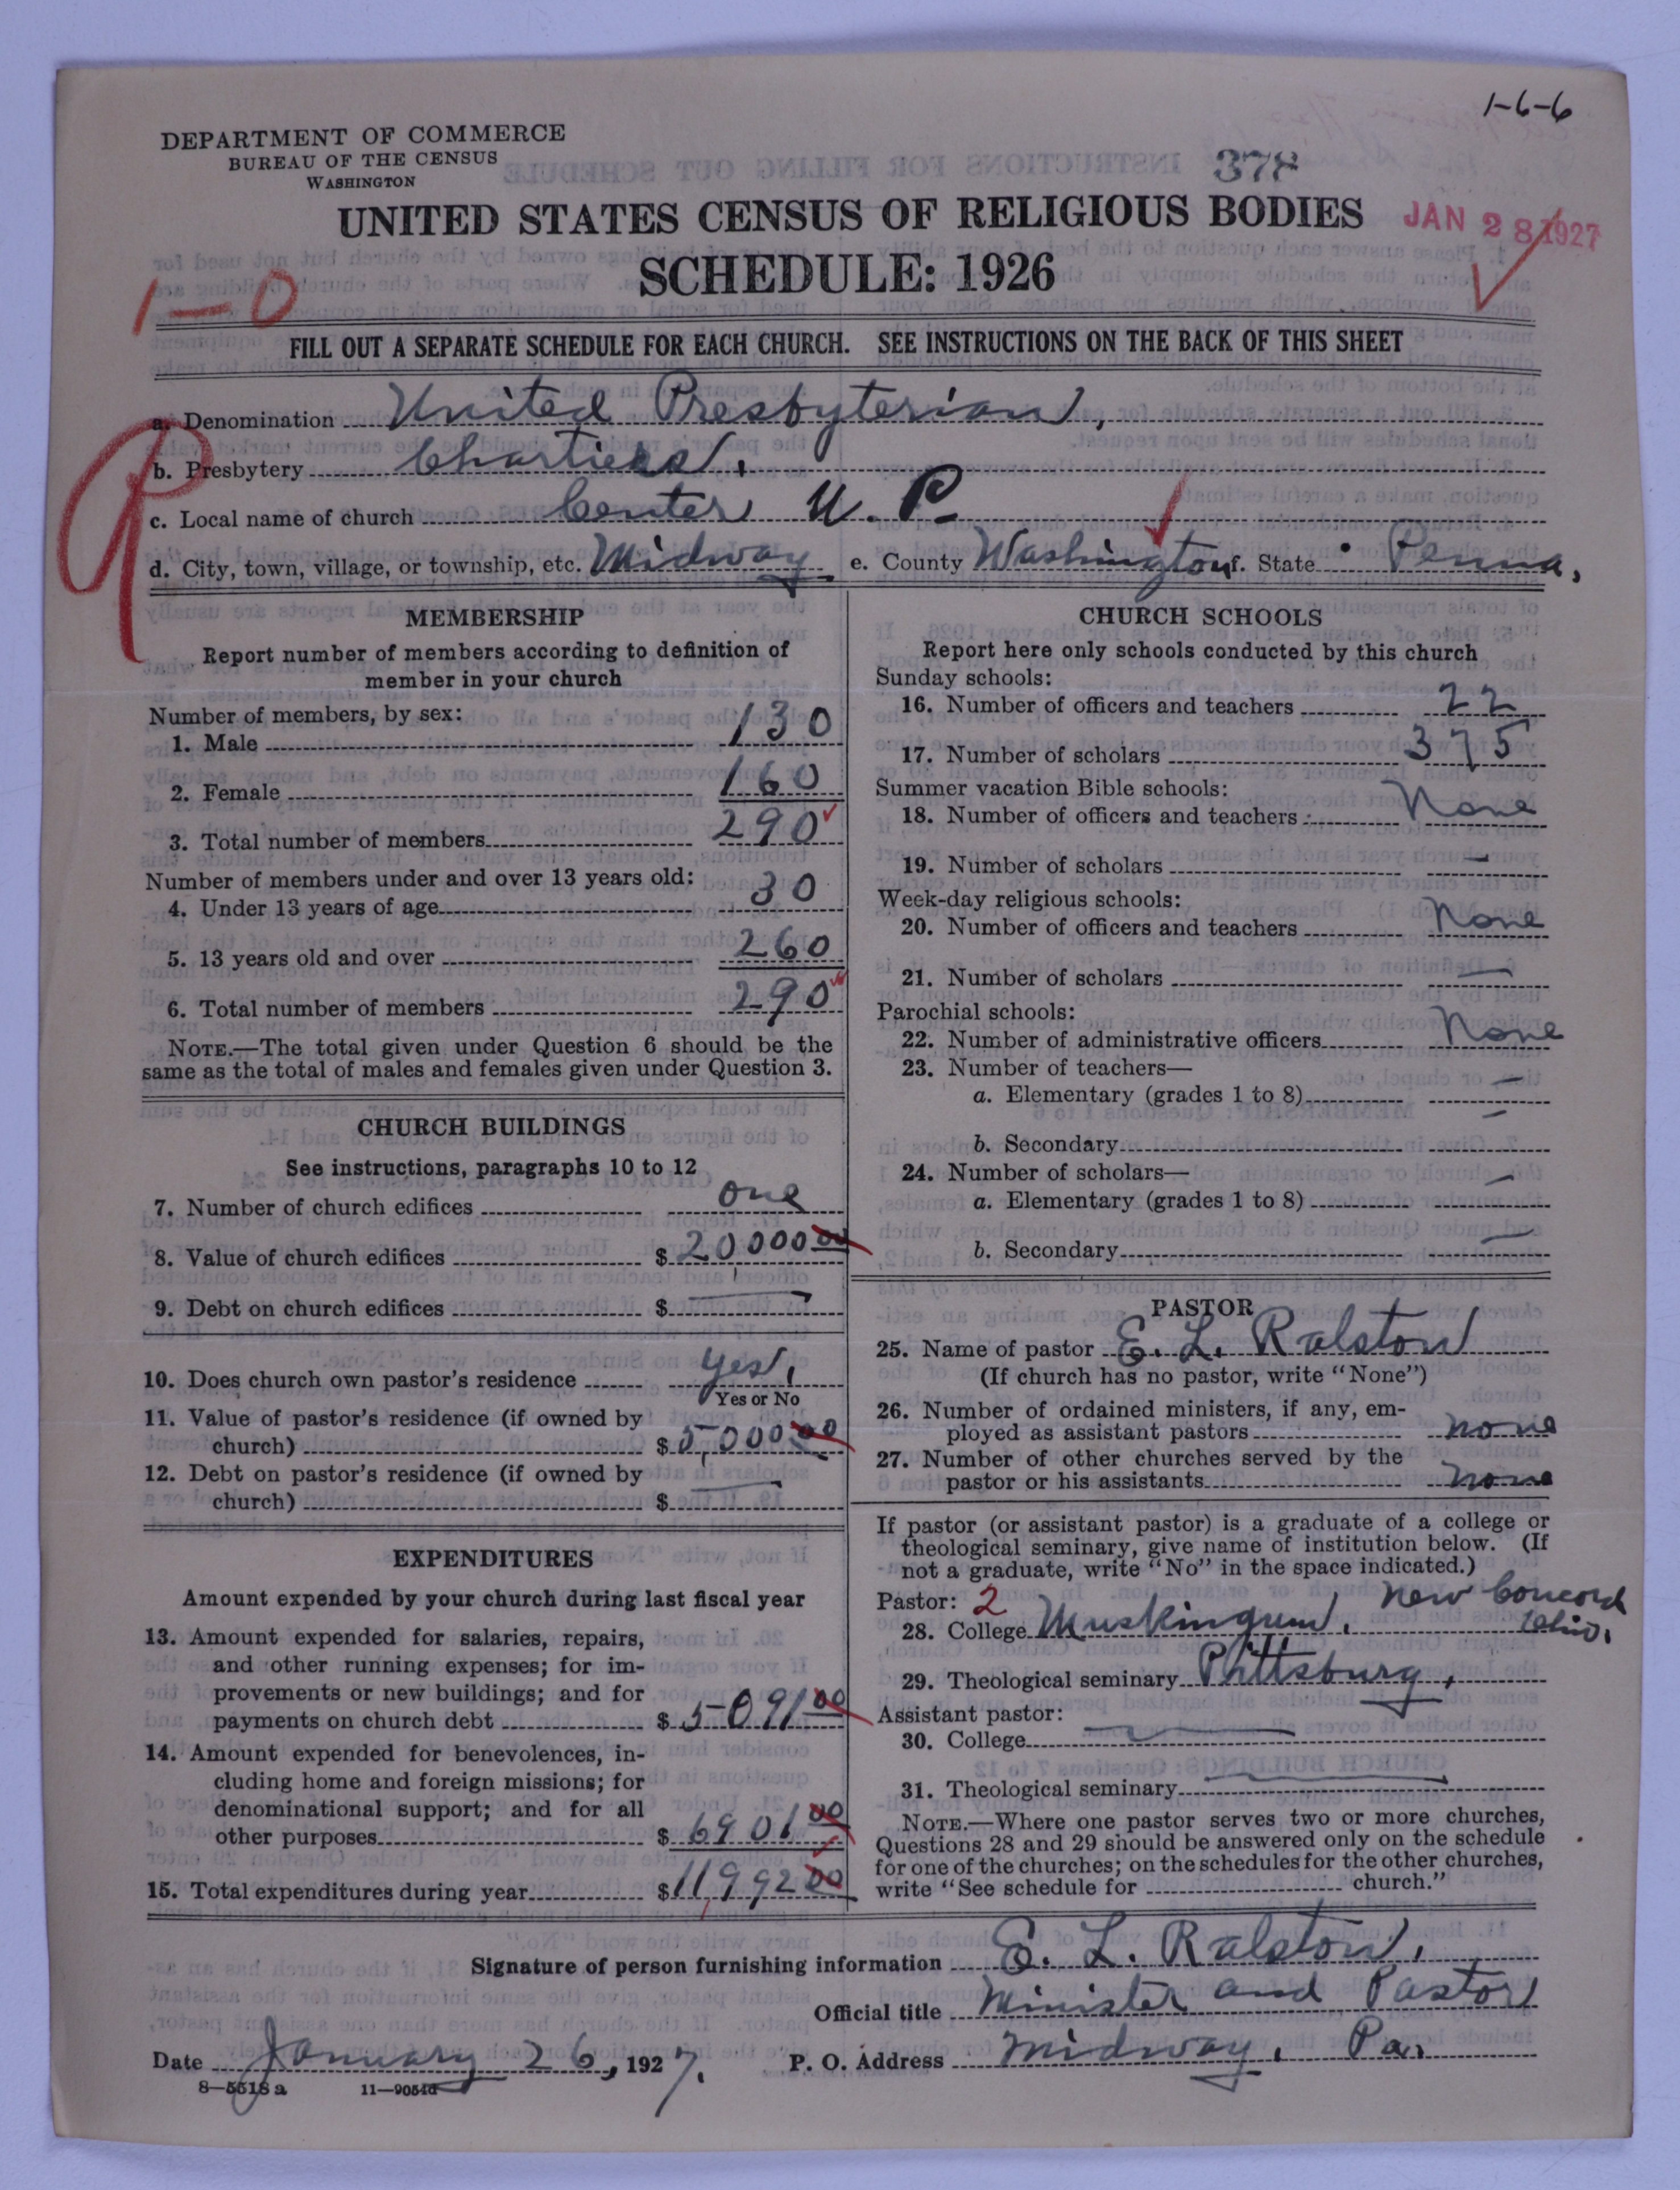 1-6-6
DEPARTMENT OF COMMERCE
BUREAU OF THE CENSUS
WASHINGTON
378
UNITED STATES CENSUS OF RELIGIOUS BODIES
JAN 28 1927
SCHEDULE: 1926
1-0
FILL OUT A SEPARATE SCHEDULE FOR EACH CHURCH. SEE INSTRUCTIONS ON THE BACK OF THIS SHEET
a. Denomination United Presbyterian,
b. Presbytery Chartiers.
c. Local name of church Center U. P.
d. City, town, village, or township, etc. Midway e. County Washington f. State Penna.
MEMBERSHIP
Report number of members according to definition of
member in your church
Number of members, by sex:
1. Male 130
2. Female 160
3. Total number of members 290
Number of members under and over 13 years old:
4. Under 13 years of age 30
5. 13 years old and over 260
6. Total number of members 290
NOTE.—The total given under Question 6 should be the
same as the total of males and females given under Question 3.
CHURCH BUILDINGS
See instructions, paragraphs 10 to 12
7. Number of church edifices one
8. Value of church edifices $ 20,000 00
9. Debt on church edifices $ —
10. Does church own pastor's residence yes,
Yes or No
11. Value of pastor's residence (if owned by
church) $ 5,000 00
12. Debt on pastor's residence (if owned by
church) $ —
EXPENDITURES
Amount expended by your church during last fiscal year
13. Amount expended for salaries, repairs,
and other running expenses; for im-
provements or new buildings; and for
payments on church debt $ 5091 00
14. Amount expended for benevolences, in-
cluding home and foreign missions; for
denominational support; and for all
other purposes $ 6901 00
15. Total expenditures during year $ 11,992 00
CHURCH SCHOOLS
Report here only schools conducted by this church
Sunday schools:
16. Number of officers and teachers 22
17. Number of scholars 375
Summer vacation Bible schools:
18. Number of officers and teachers None
19. Number of scholars —
Week-day religious schools:
20. Number of officers and teachers None
21. Number of scholars —
Parochial schools:
22. Number of administrative officers None
23. Number of teachers—
a. Elementary (grades 1 to 8) —
b. Secondary —
24. Number of scholars—
a. Elementary (grades 1 to 8) —
b. Secondary —
PASTOR
25. Name of pastor E. L. Ralston
(If church has no pastor, write "None")
26. Number of ordained ministers, if any, em-
ployed as assistant pastors none
27. Number of other churches served by the
pastor or his assistants none
If pastor (or assistant pastor) is a graduate of a college or
theological seminary, give name of institution below. (If
not a graduate, write "No" in the space indicated.)
Pastor: 2
28. College Muskingum, New Concord Ohio.
29. Theological seminary Pittsburg,
Assistant pastor:
30. College —
31. Theological seminary —
NOTE.—Where one pastor serves two or more churches,
Questions 28 and 29 should be answered only on the schedule
for one of the churches; on the schedules for the other churches,
write "See schedule for church."
Signature of person furnishing information E. L. Ralston.
Official title Minister and Pastor
Date January 26, 1927. P. O. Address Midway, Pa.
8—5518 a 11—9054d